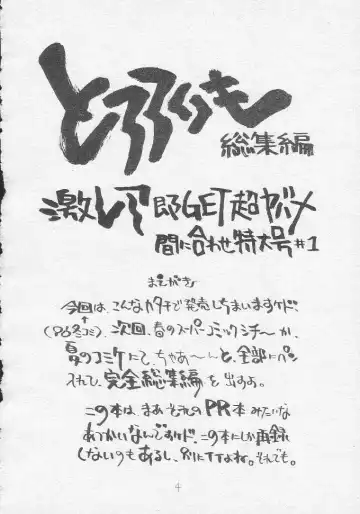 とろろいも
総集編
激レア即GET超ヤバメ
間に合わせ特大号#1
まえがき
今回は、こんなカタチで発売しちまいますケド、
(96冬コミ)、次回、春のスーパーコミックシティーか、
夏のコミケにて、ちゃあ〜んと、全部にペン
入れて、完全総集編を出すよ。
この本は、まあそれのPR本みたいな
あつかいなんですケド、この本にしか再録
しないのもあるし、別にイイよね。それでも。
4